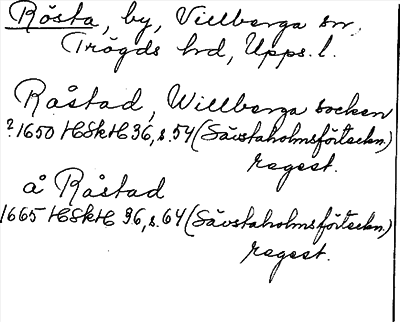 Rösta, by, Villberga sn,
Trögds hd, Upps. l.
Råstad, Willberga socken
? 1650 HSkH 36, s. 54 (Sävstaholmsförteckn.)
regest.
å Råstad
1665 HSkH 36, s. 64 (Sävstaholmsförteckn.)
regest.